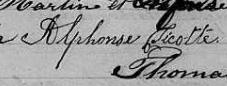 Martine et
Alphonse Ticotte
Thoma